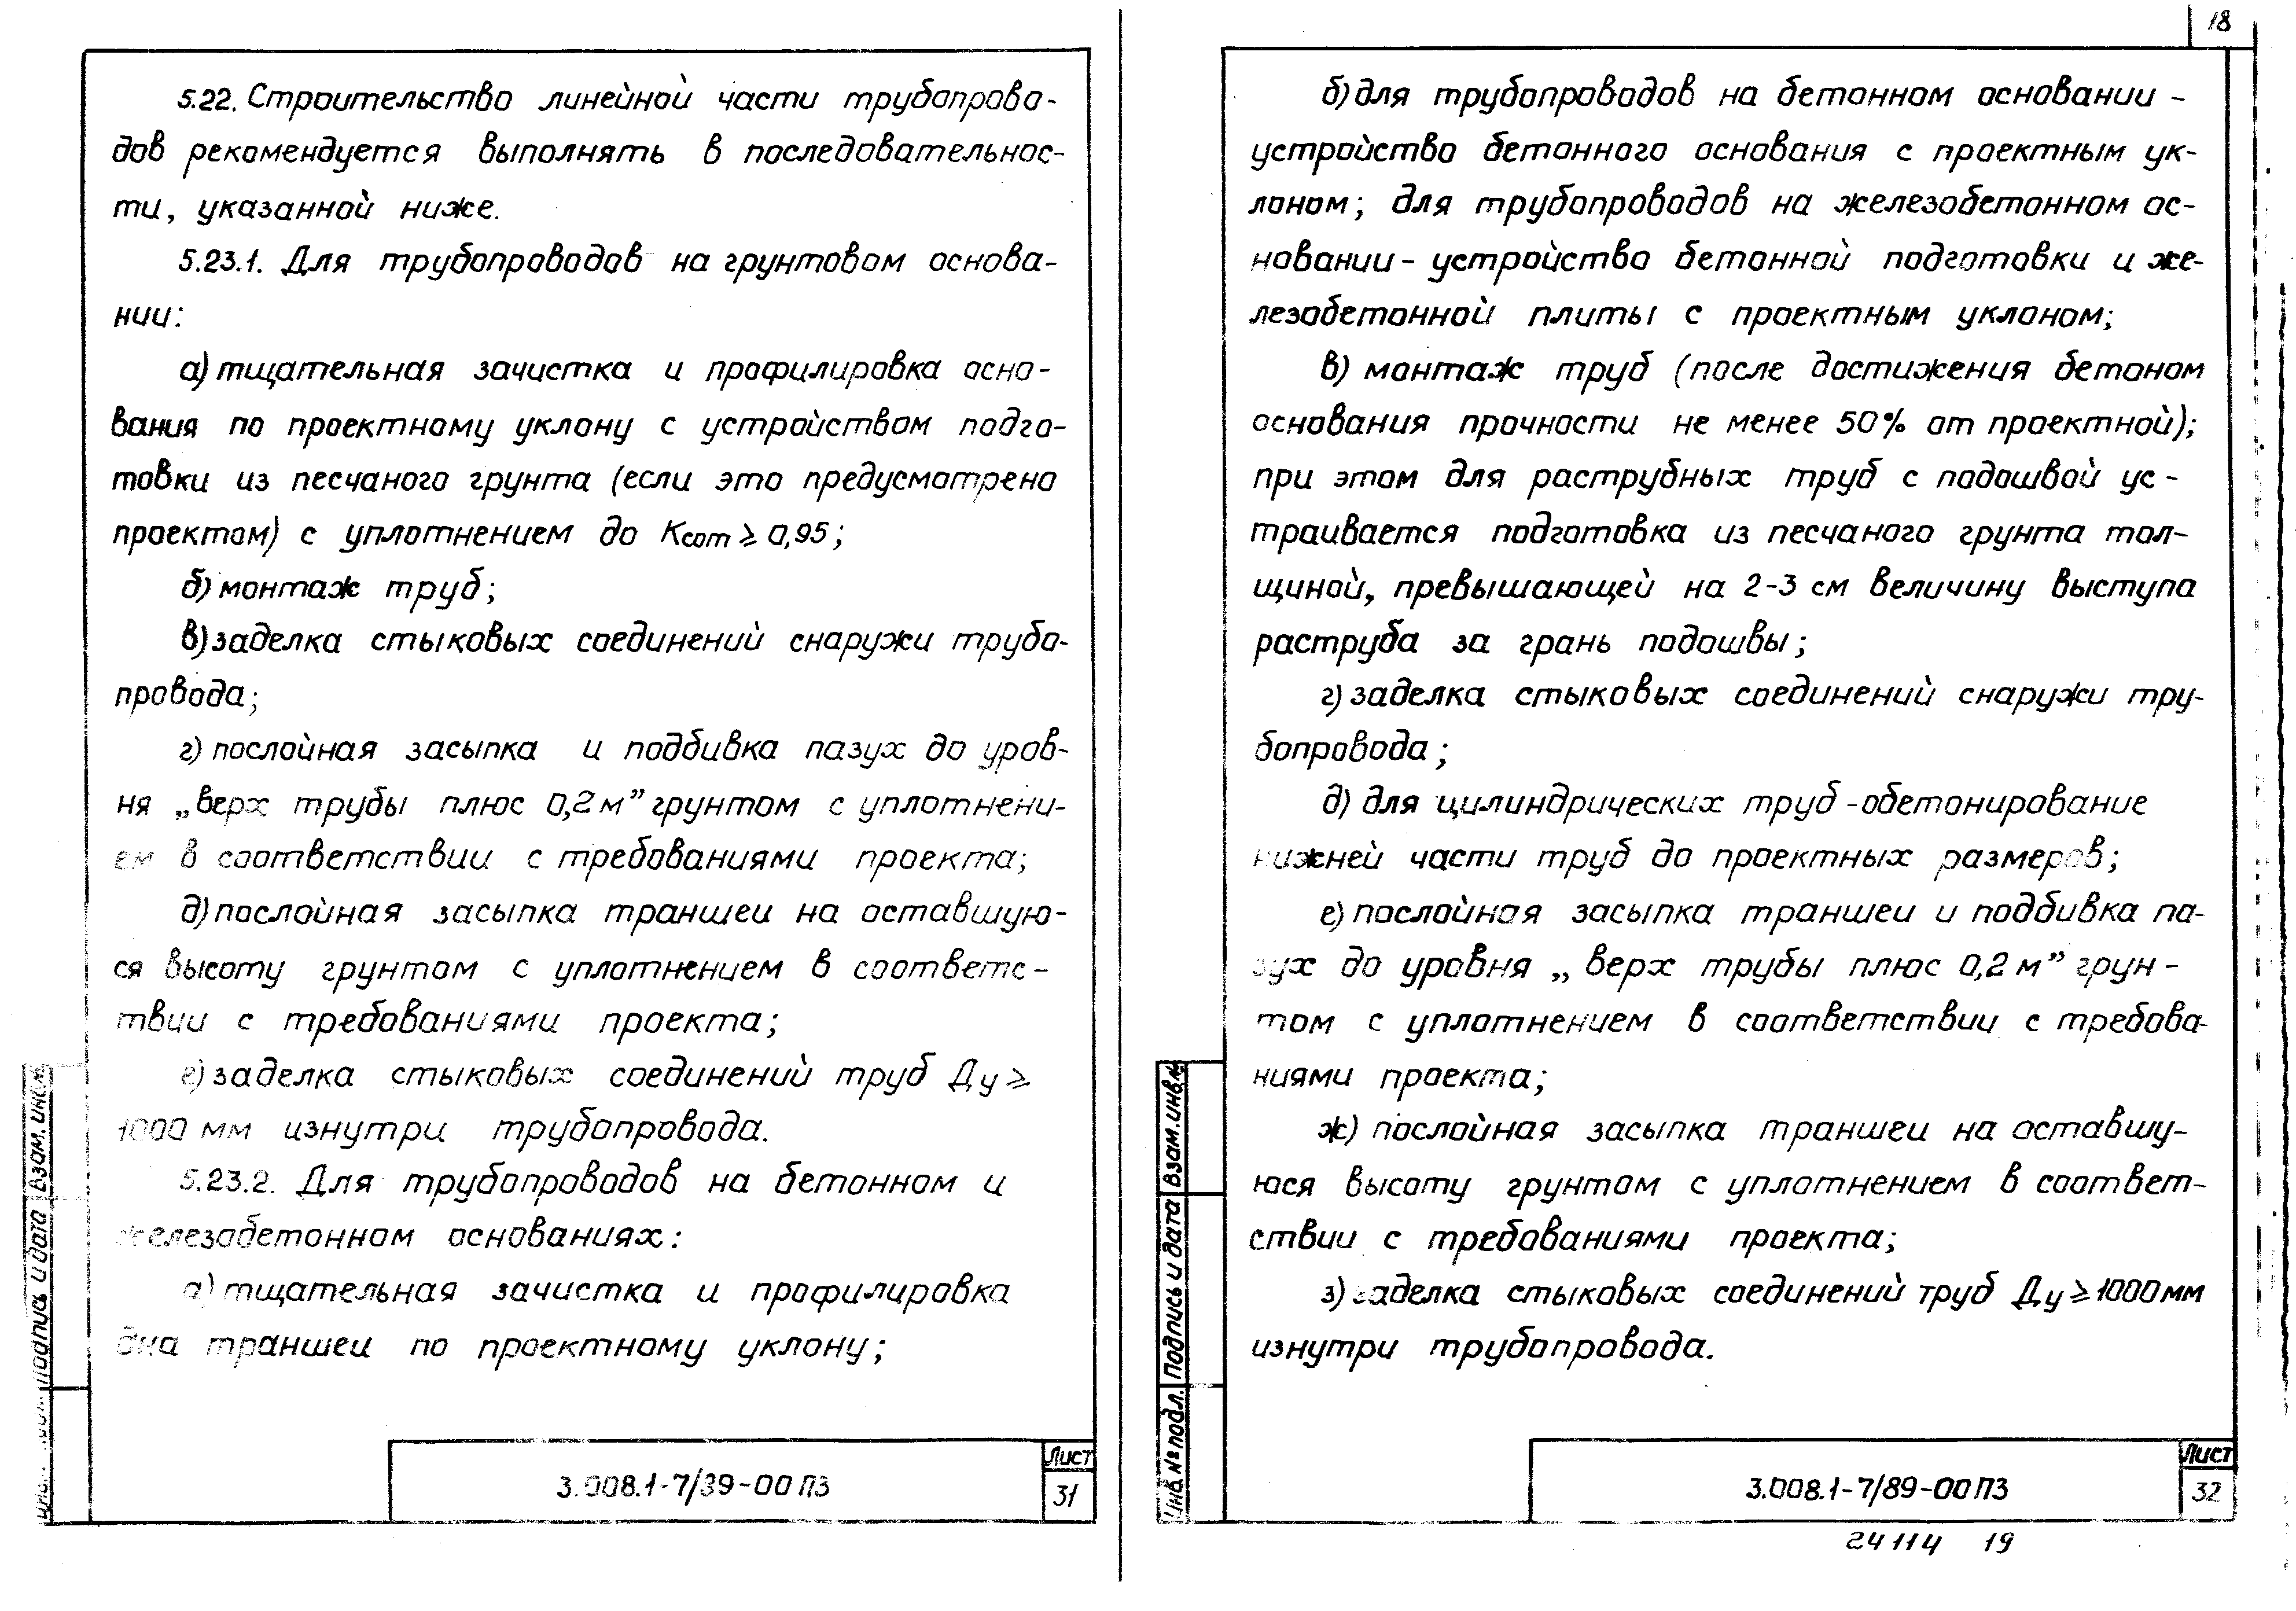 5.22. Строительство линейной части трубопрово-
дов рекомендуется выполнять в последовательнос-
ти, указанной ниже.
5.23.1. Для трубопроводов на грунтовом основа-
нии:
а) тщательная зачистка и профилировка осно-
вания по проектному уклону с устройством подго-
товки из песчаного грунта (если это предусмотрено
проектом) с уплотнением до Ксот ≥ 0,95;
б) монтаж труб;
в) заделка стыковых соединений снаружи трубо-
провода;
г) послойная засыпка и подбивка пазух до уров-
ня „верх трубы плюс 0,2 м” грунтом с уплотнени-
ем в соответствии с требованиями проекта;
д) послойная засыпка траншеи на оставшую-
ся высоту грунтом с уплотнением в соответс-
твии с требованиями проекта;
е) заделка стыковых соединений труб Ду ≥
1000 мм изнутри трубопровода.
5.23.2. Для трубопроводов на бетонном и
железобетонном основаниях:
а) тщательная зачистка и профилировка
дна траншеи по проектному уклону;
Подпись и дата Взам. инв.№
3.008.1-7/89-00 ПЗ
Лист
31
18
б) для трубопроводов на бетонном основании -
устройство бетонного основания с проектным ук-
лоном; для трубопроводов на железобетонном ос-
новании - устройство бетонной подготовки и же-
лезобетонной плиты с проектным уклоном;
в) монтаж труб (после достижения бетоном
основания прочности не менее 50% от проектной);
при этом для раструбных труб с подошвой ус-
траивается подготовка из песчаного грунта тол-
щиной, превышающей на 2-3 см величину выступа
раструба за грань подошвы;
г) заделка стыковых соединений снаружи тру-
бопровода;
д) для цилиндрических труб - обетонирование
нижней части труб до проектных размеров;
е) послойная засыпка траншеи и подбивка па-
зух до уровня „верх трубы плюс 0,2 м” грун-
том с уплотнением в соответствии с требова-
ниями проекта;
ж) послойная засыпка траншеи на оставшу-
юся высоту грунтом с уплотнением в соответ-
ствии с требованиями проекта;
з) заделка стыковых соединений труб Ду ≥ 1000 мм
изнутри трубопровода.
Инв. № подл. Подпись и дата Взам. инв.№
3.008.1-7/89-00 ПЗ
Лист
32
24114 19